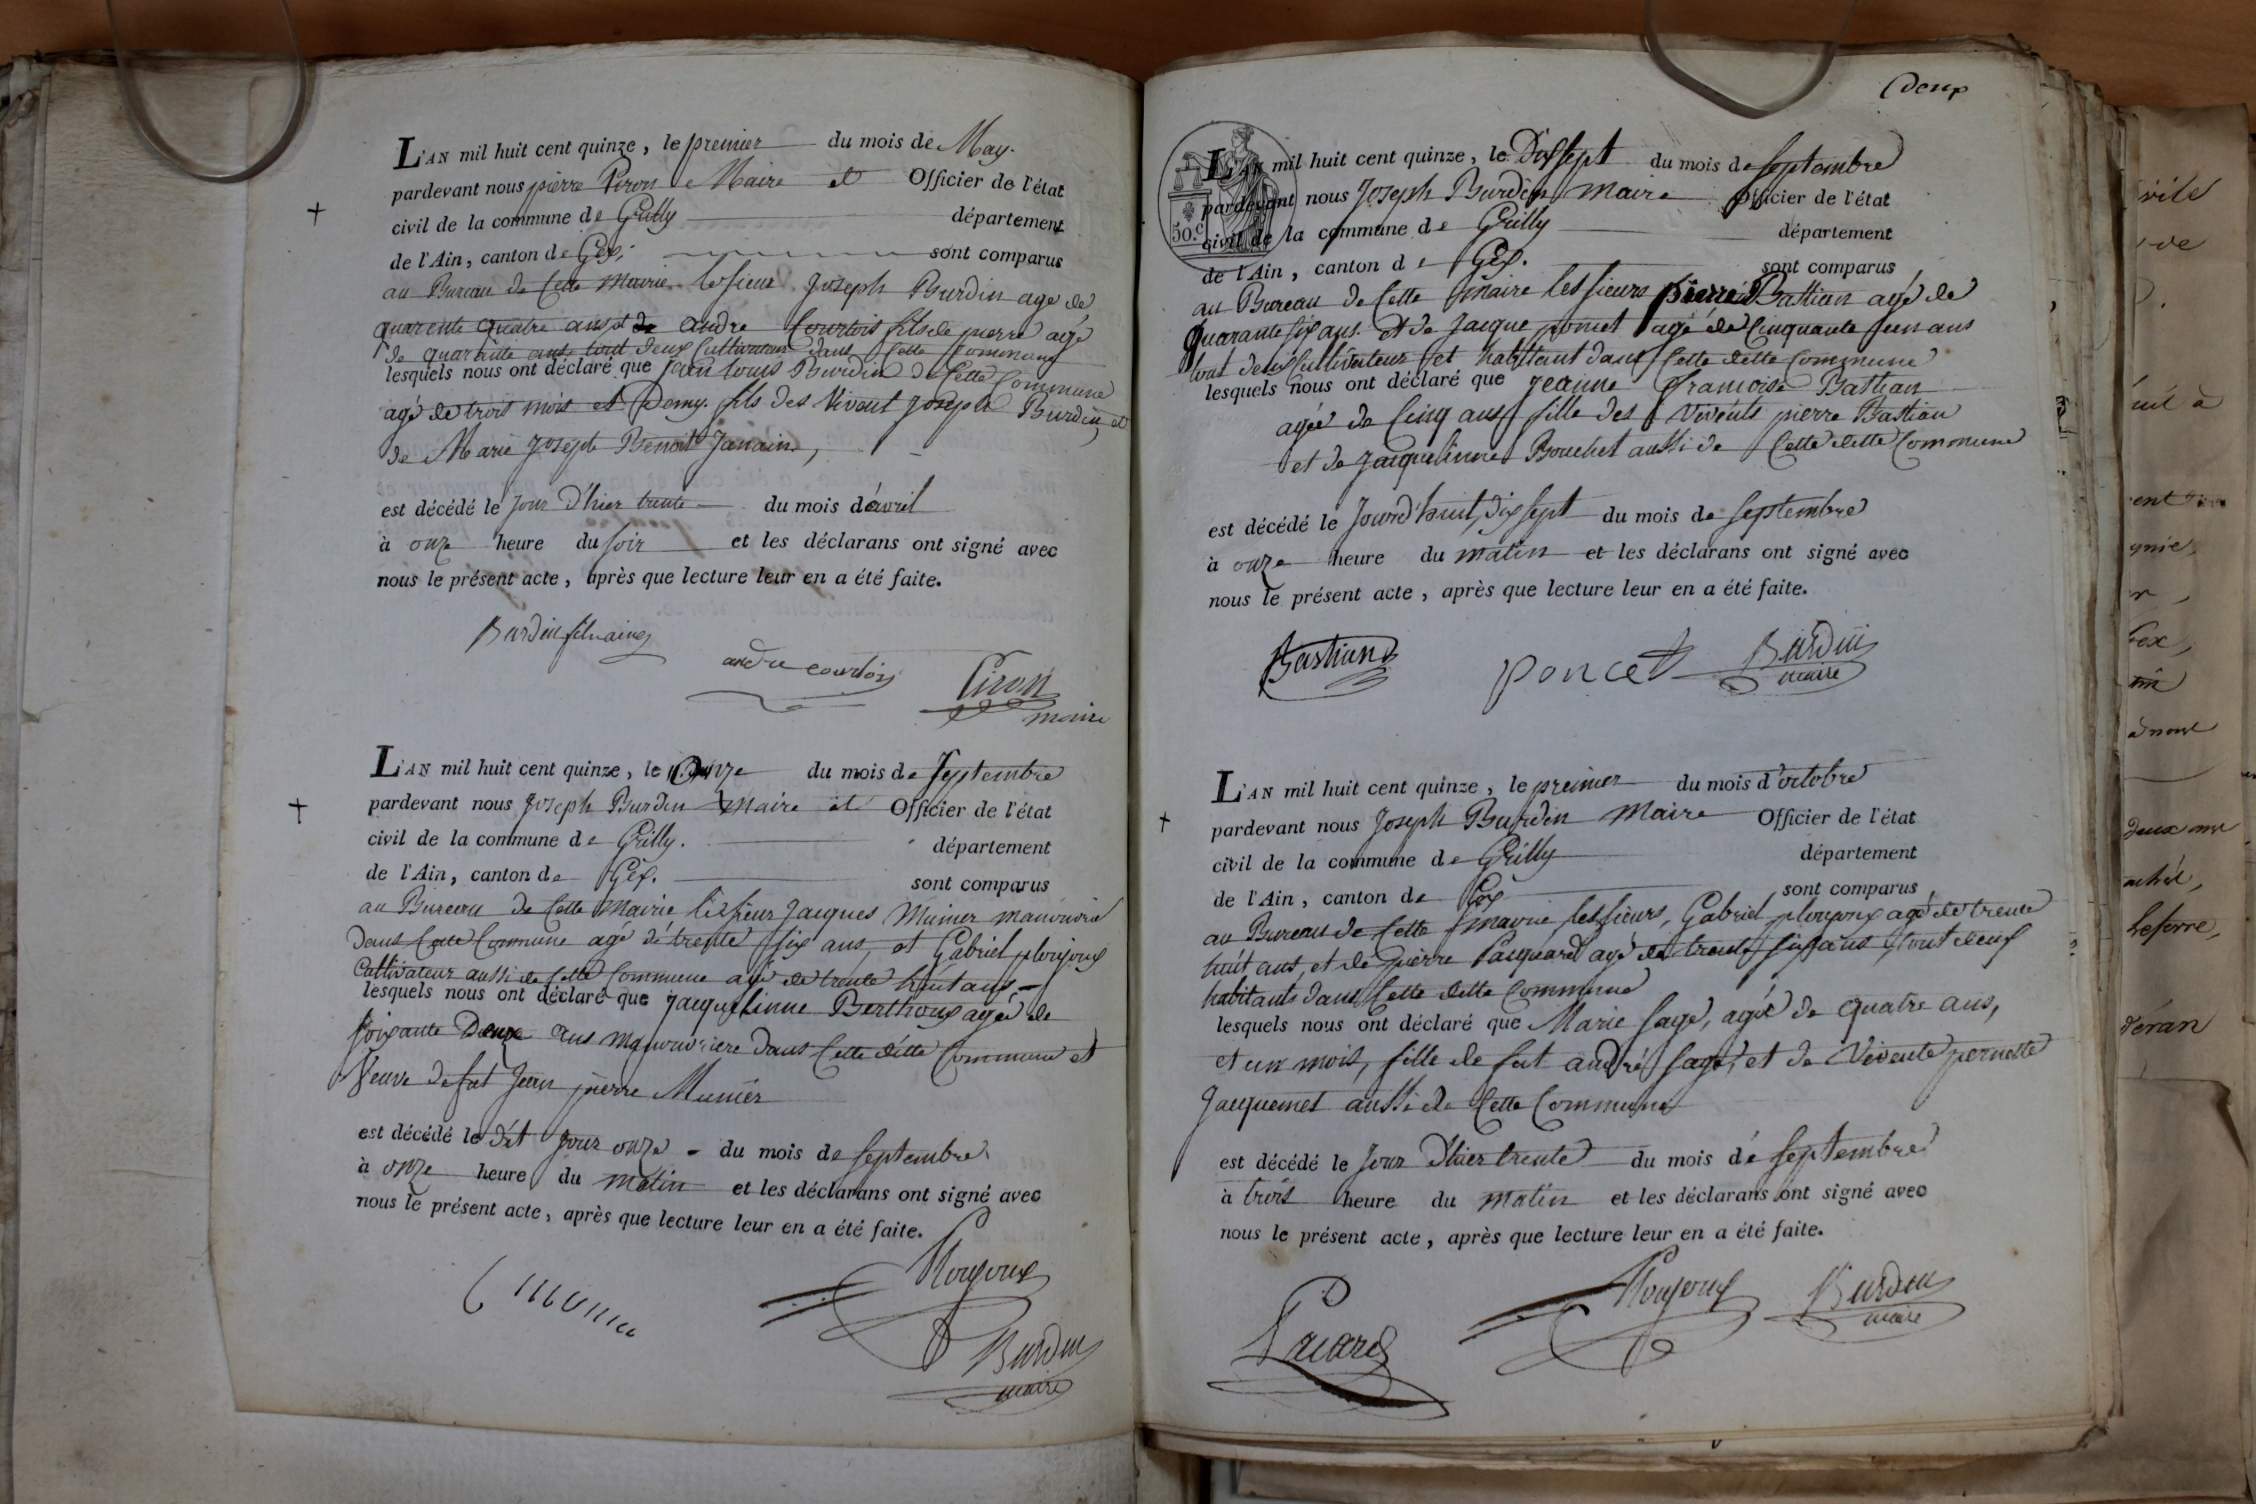 L'AN mil huit cent quinze, le premier du mois de May.
pardevant nous pierre Piron Maire et Officier de l'état
civil de la commune de Grilly département
de l'Ain, canton de Gex, sont comparus
au Bureau de Cette Mairie les sieur Joseph Burdin agé de
quarente quatre ans et de andré Courtois fils de pierre agé
de quarante ans tout deux Cultivateur dans Cette Commune
lesquels nous ont déclaré que jean louis Burdin de Cette Commune
agé de trois mois et Demy. fils des Vivent Joseph Burdin et
de Marie Joseph Benoit Janain,
est décédé le jour d'hier trente du mois d'avril
à onze heure du soir et les déclarans ont signé avec
nous le présent acte, après que lecture leur en a été faite.
Burdin
andre courtois
Piron
maire
L'AN mil huit cent quinze, le Onze du mois de Septembre
pardevant nous Joseph Burdin Maire et Officier de l'état
civil de la commune de Grilly. département
de l'Ain, canton de Gex. sont comparus
au Bureau de Cette Mairie les sieur Jacques Munier
dans Cette Commune agé de trente six ans, et Gabriel ploujoux
Cultivateur aussi de Cette Commune agé de trente huit ans
lesquels nous ont déclaré que jacquelinne Berthoux agée de
soixante Douze ans manouvriere dans Cette ditte Commune et
Veuve de fut Jean pierre Munier
est décédé le dit jour onze du mois de Septembre
à onze heure du matin et les déclarans ont signé avec
nous le présent acte, après que lecture leur en a été faite.
Ploujoux
Burdin
maire
deux
50.c
L'AN mil huit cent quinze, le Dix sept du mois de septembre
pardevant nous Joseph Burdin Maire Officier de l'état
civil de la commune de Grilly département
de l'Ain, canton de Gex. sont comparus
au Bureau de Cette Maire les sieurs pierre Bastian agé de
Quarante six ans. et de Jacque poncet agé de Cinquante un ans
tout deux Cultivateur et habitant dans Cette ditte Commune
lesquels nous ont déclaré que jeanne francoise Bastian
agée de Cinq ans fille des Vivents pierre Bastian
et de jacquelinne Bouchet aussi de Cette ditte Commune
est décédé le Jourd'huit, dix sept du mois de septembre
à onze heure du matin et les déclarans ont signé avec
nous le présent acte, après que lecture leur en a été faite.
Bastian
poncet
Burdin
maire
L'AN mil huit cent quinze, le premier du mois d'octobre
pardevant nous Joseph Burdin Maire Officier de l'état
civil de la commune de Grilly département
de l'Ain, canton de Gex sont comparus
au Bureau de Cette mairie les sieurs, Gabriel ploujoux agé de trente
huit ans, et de pierre agé de trente six ans, tout deux
habitants dans Cette ditte Commune
lesquels nous ont déclaré que Marie sage, agée de quatre ans,
et un mois, fille de fut andré sage, et de Vivente pernette
Jacquemet aussi de Cette Commune
est décédé le jour d'hier trente du mois de septembre
à trois heure du matin et les déclarans ont signé avec
nous le présent acte, après que lecture leur en a été faite.
Ploujoux
Burdin
maire